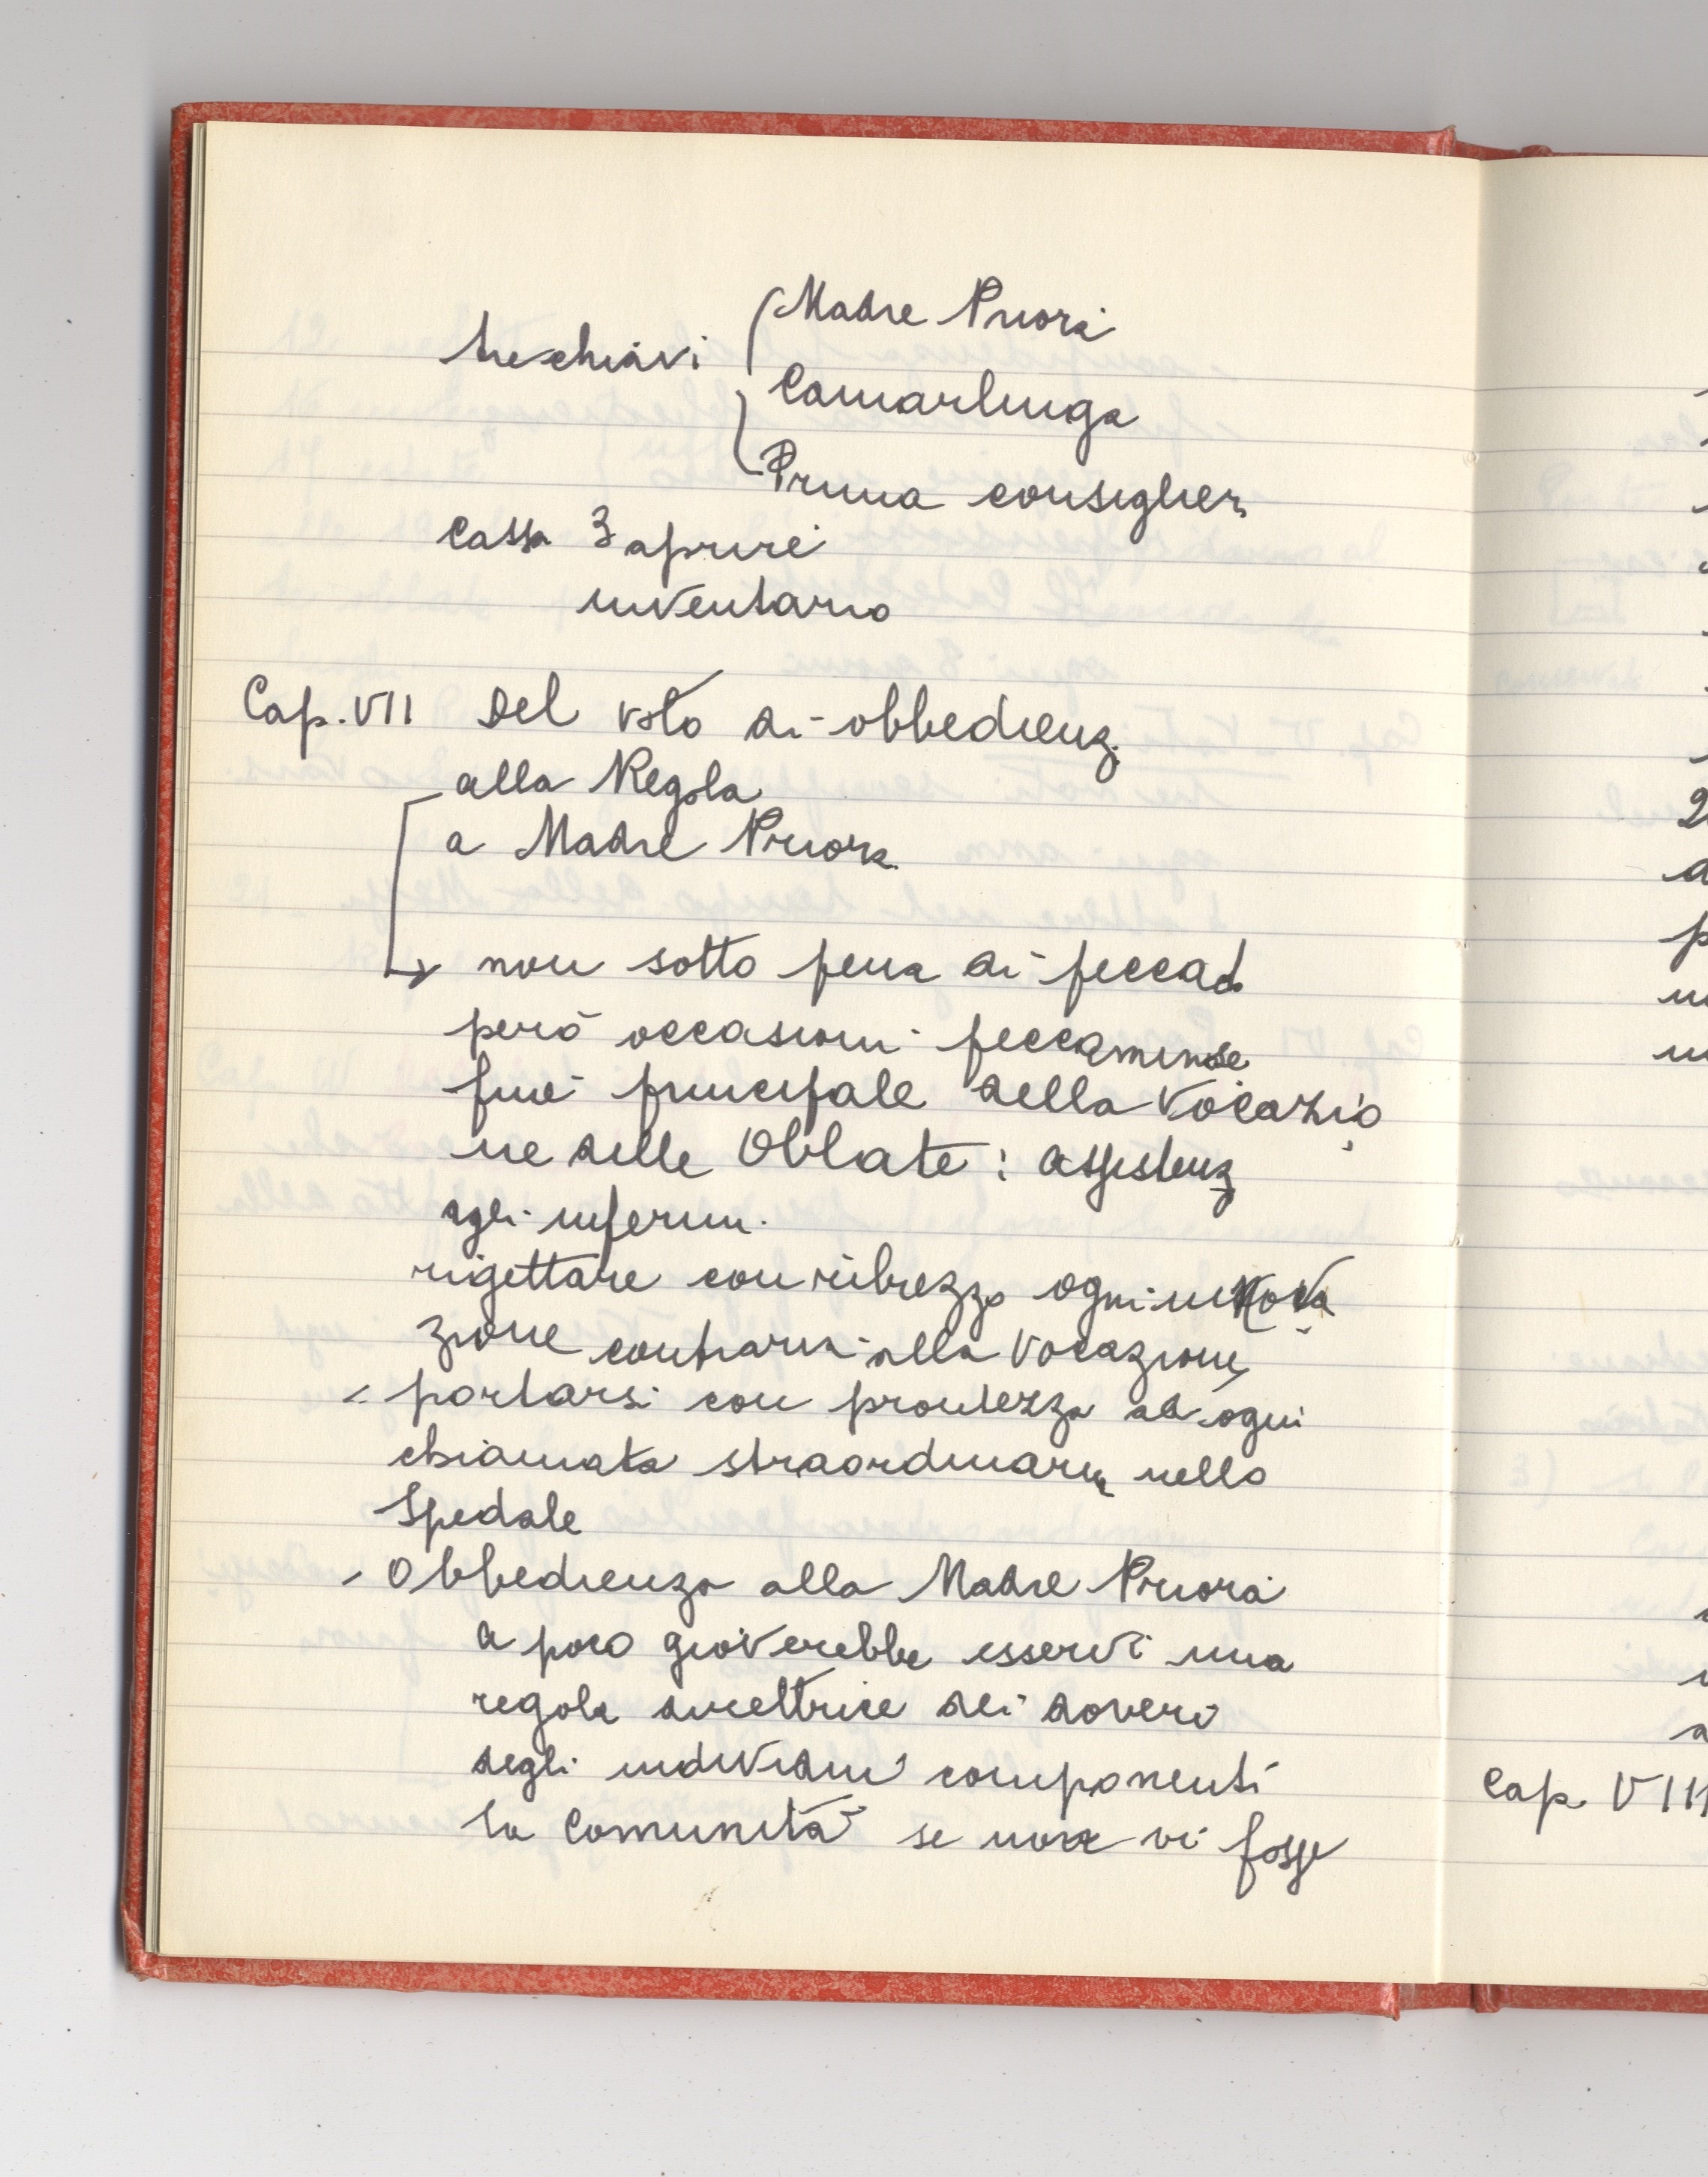 tre chiavi { Madre Priora
Camarlinga
Prima consiglier.
Cassa 3 aprire
inventario
Cap. VII Del voto di obbedienz.
alla Regola
a Madre Priora
→ non sotto pena di peccato
però occasioni peccaminose
fine principale della Vocazio
ne delle Oblate: assistenz
agli infermi.
rigettare con ribrezzo ogni innova
zione contraria alla Vocazione
- portarsi con prontezza ad ogni
chiamata straordinaria nello
Spedale
- Obbedienza alla Madre Priora
a poco gioverebbe esservi una
regola direttrice dei doveri
degli individui componenti
la Comunità se non vi fosse
Cap. VIII